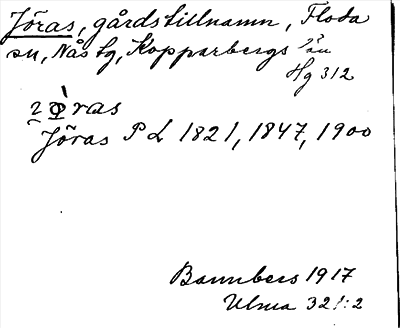 Jöras, gårdstillnamn, Floda
sn, Nås tg, Kopparbergs län
Hg 312
Jöras P L 1821, 1847, 1900
Bannbers 1917
Ulma 321:2